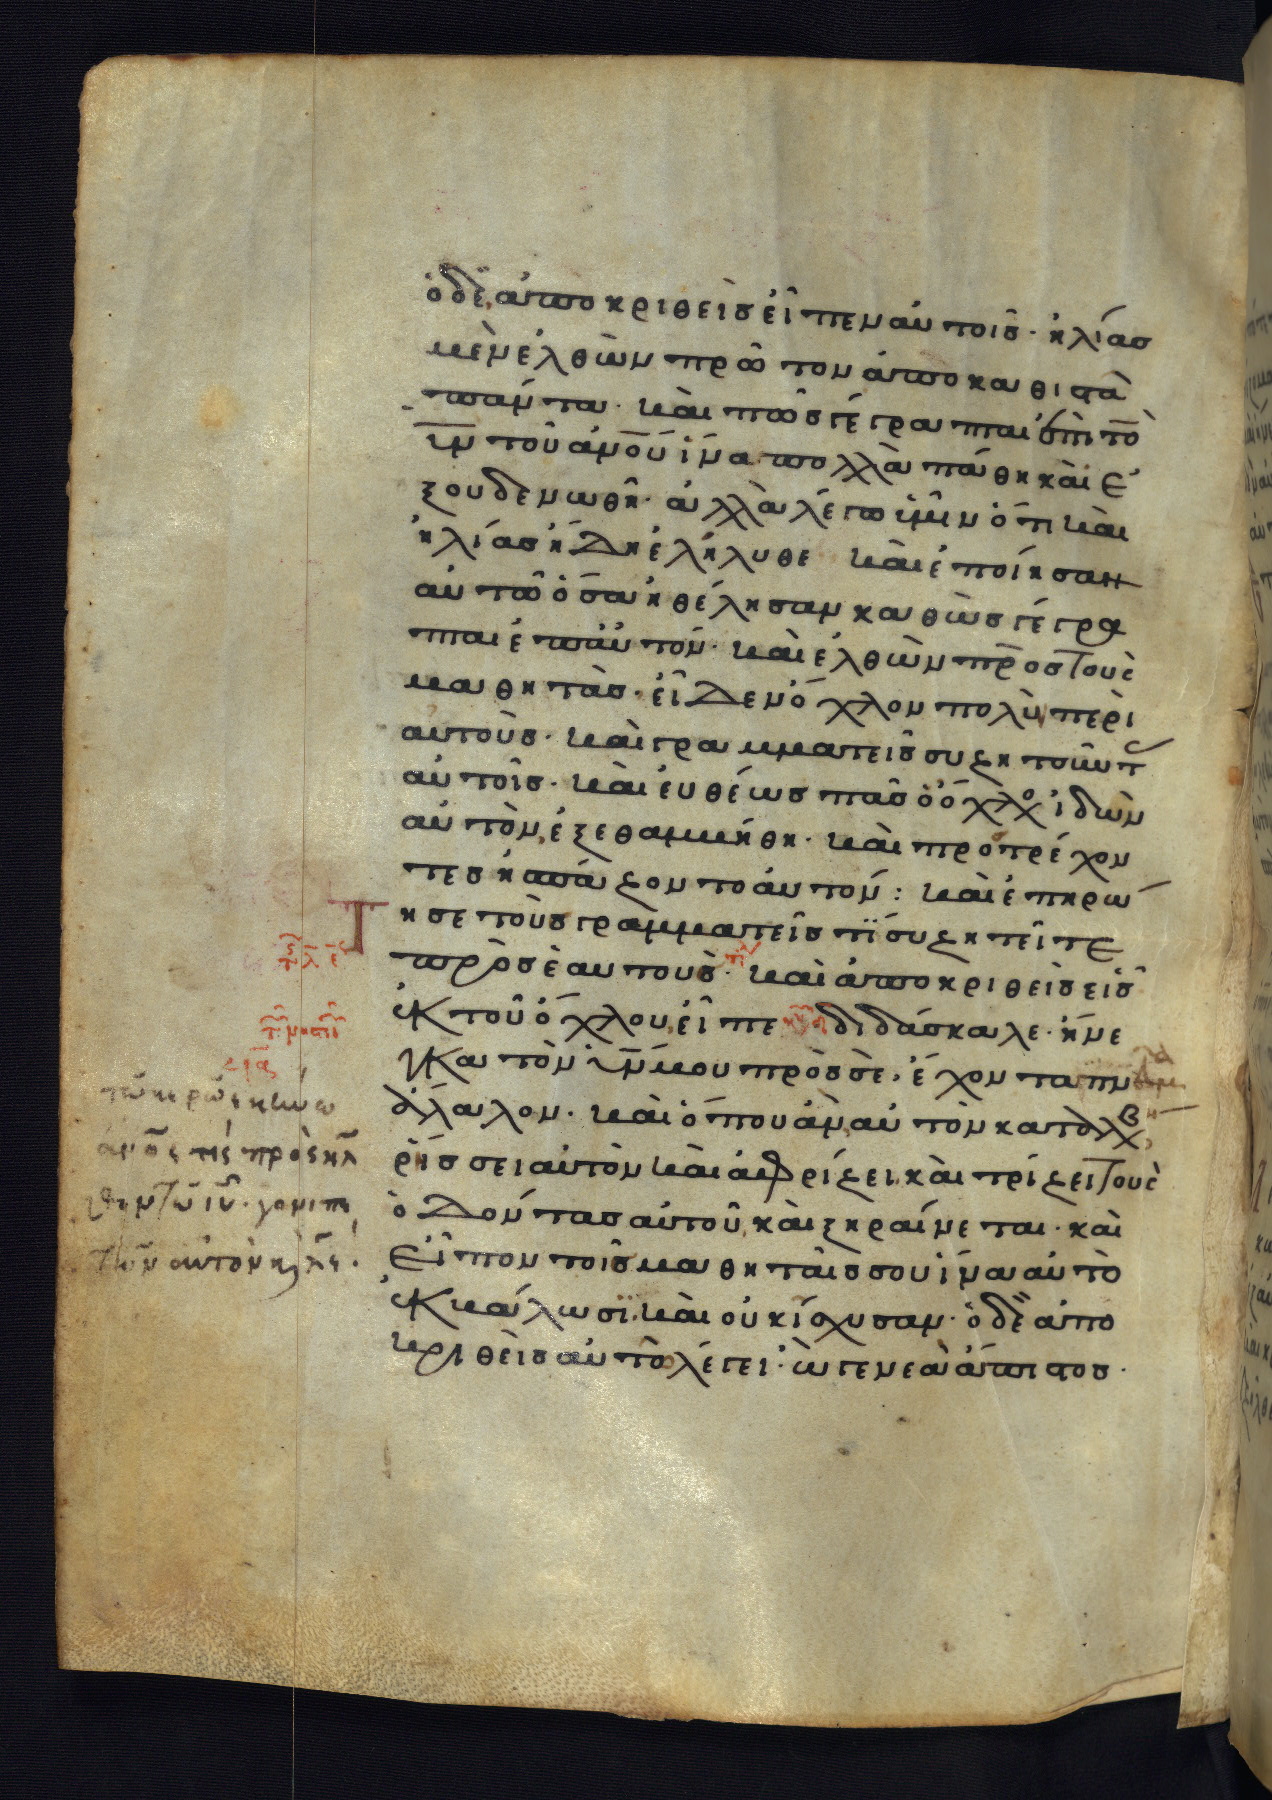 ὁ δὲ ἀποκριθεὶς εἶπεν αὐτοῖς· ἠλίας
μὲν ἐλθὼν πρῶτον ἀποκαθιστᾶ
πάντα· καὶ πῶς γέγραπται ἐπὶ τὸ
ῡν τοῦ ἀνοῦ ἵνα πολλὰ πάθη καὶ ἐ
ξουδενωθῆ· ἀλλὰ λέγω ὑμῖν ὅτι καὶ
ἠλίας ἤδη ἐλήλυθε καὶ ἐποίησαν
αὐτῶ ὅσα ἠθέλησαν καθὼς γέγρα
πται ἐπ αὐτόν· καὶ ἐλθὼν πρὸς τοὺς
μαθητὰς· εἶδεν ὄχλον πολὺν περὶ
αυτοὺς· καὶ γραμματεῖς συζητοῦντ
αὐτοῖς· καὶ ἐυθέως πᾶς ὁ ὄχλο ἰδὼν
αὐτὸν, ἐξεθαμμήθη· καὶ προτρέχον
τες ἠσπάζοντο ἀυτόν: καὶ ἐπηρώ
τησε τοὺς γραμματεῖς τί συζητεῖτε
πρὸς ἑαυτους· καὶ ἀποκριθεὶς εἷς
ἐκ τοῦ ὄχλου, εἶπε διδάσκαλε· ἤνε
γκα τὸν ῡν μου πρὸς σὲ, ἔχοντα πνα
ἄλαλον· καὶ ὅπου ἀν αὐτὸν καταλβη
ρήσσει αὐτὸν καὶ ἀφρίζει, καὶ τρίζει τοὺς
ὀδόντας αὐτοῦ, καὶ ξηραίνεται· καὶ
εἶπον τοῖς μαθηταῖς σου ἵνα αὐτὸ
ἐκβάλωσϊ. καὶ οὐκ ἴσχυσαν· ὁ δὲ ἀπο
κριθεὶς αὐτῶ λέγει· ὦ γενεὰ ἄπιστος·
τῶ κερῶ εκείνω
ἀνος τίς προσηλ
θεν τῶ ιυ· γονυπε
τῶν αὐτὸν κ λέγ·